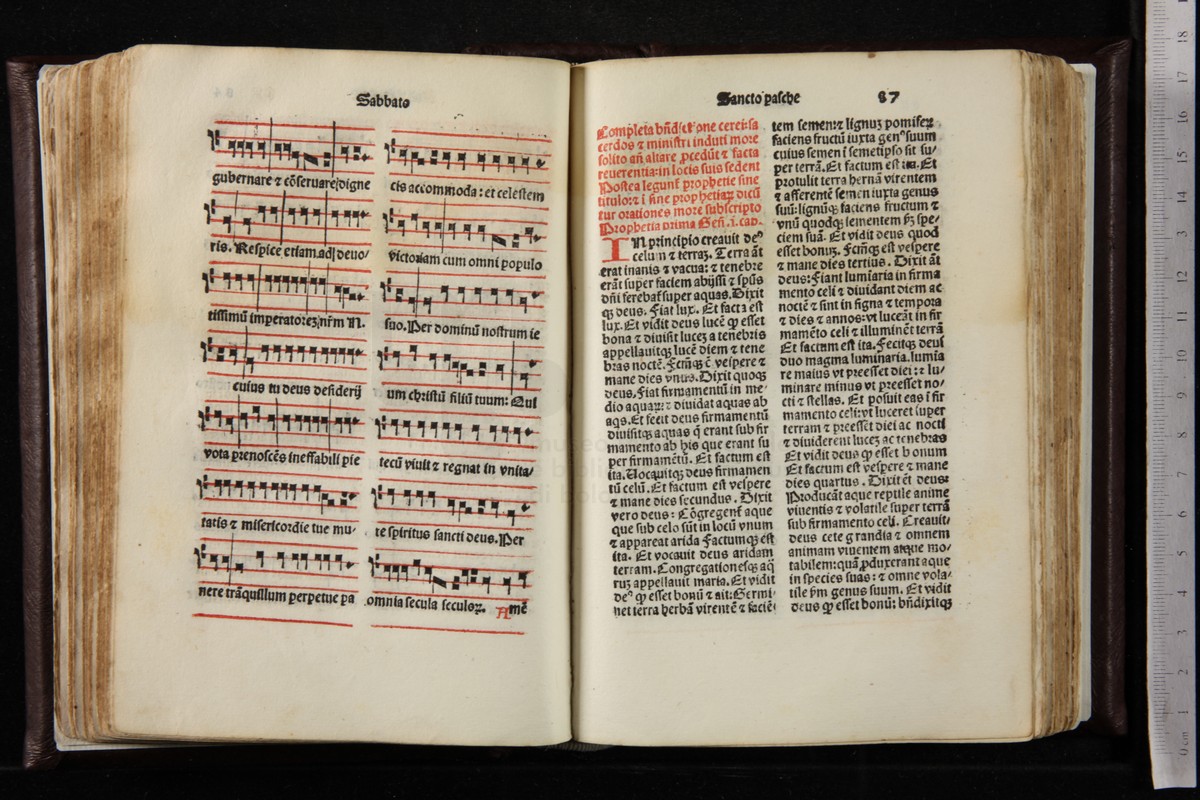 Sabbato
gubernare ⁊ cōseruare digne
ris. Respice etiam ad deuo/
tissimū imperatorez nr̄m N.
cuius tu deus desiderij
vota prenoscēs ineffabili pie
tatis ⁊ misericordie tue mu-
nere trāquillum perpetue pa
cis accommoda: et celestem
victoriam cum omni populo
suo. Per dominū nostrum ie
um christū filiū tuum: Qui
tecū viuit ⁊ regnat in vnita/
te spiritus sancti deus. Per
omnia secula seculoꝝ. Amē
Sancto pasche 87
Completa bn̄dictione cerei: sa
cerdos ⁊ ministri induti more
solito an̄ altare ꝓcedūt ⁊ facta
reuerentia: in locis suis sedent
Postea legunt̄ prophetie sine
titulo: ⁊ ī fine prophetiaꝝ dicū
tur orationes more subscripto
Prophetia prima Gen̄. i. cap.
IN principio creauit deꝰ
celum ⁊ terraz. Terra āt
erat inanis ⁊ vacua: ⁊ tenebre
erāt super faciem abijssi ⁊ spūs
dn̄i ferebat̄ super aquas. Dixit
qꝫ deus. Fiat lux. Et facta est
lux. Et vidit deus lucē ꝙ esset
bona ⁊ diuisit lucez a tenebris
appellauitqꝫ lucē diem ⁊ tene
bras noctē. Fctm̄qꝫ ē vespere ⁊
mane dies vnus. Dixit quoqꝫ
deus. Fiat firmamentū in me-
dio aquaꝝ: ⁊ diuidat aquas ab
aqs. Et fecit deus firmamentū
diuisitqꝫ aquas q̄ erant sub fir
mamento ab his que erant su
per firmamētū. Et factum est
ita. Uocauitqꝫ deus firmamen
tū celū. Et factum est vespere
⁊ mane dies secundus. Dixit
vero deus: Cōgregent̄ aque
que sub celo sūt in locū vnum
⁊ appareat arida Factumqꝫ est
ita. Et vocauit deus aridam
terram. Congregationesqꝫ aq̄
ruꝫ appellauit maria. Et vidit
deꝰ ꝙ esset bonū ⁊ ait: Germi-
net terra herbā virentē ⁊ faciē
tem semen: ⁊ lignuꝫ pomifeꝝ
faciens fructū iuxta genꝰ suum
cuius semen ī semetipso sit su/
per terrā. Et factum est ita. Et
protulit terra herbā virentem
⁊ afferentē semen iuxta genus
suū: lignūqꝫ faciens fructum ⁊
vnū quodqꝫ sementem ẜm spe/
ciem suā. Et vidit deus quod
esset bonuꝫ. Fctm̄qꝫ est vespere
⁊ mane dies tertius. Dixit āt
deus: Fiant lumīaria in firma
mento celi ⁊ diuidant diem ac
noctē ⁊ sint in signa ⁊ tempora
⁊ dies ⁊ annos: vt luceāt in fir
mamēto celi ⁊ illuminēt terrā
Et factum est ita. Fecitqꝫ deus
duo magna luminaria. lumia
re maius vt preesset diei: ⁊ lu/
minare minus vt preesset no/
cti ⁊ stellas. Et posuit eas ī fir
mamento celi: vt luceret super
terram ⁊ preesset diei ac nocti
⁊ diuiderent lucez ac tenebras
Et vidit deus ꝙ esset bonum
Et factum est vespere ⁊ mane
dies quartus. Dixit ēt deus:
Producāt aque reptile anime
viuentis ⁊ volatile super terrā
sub firmamento celi. Creauit/
deus cete grandia ⁊ omnem
animam viuentem atque mo/
tabilem: quā ꝓduxerant aque
in species suas: ⁊ omne vola/
tile ẜm genus suum. Et vidit
deus ꝙ esset bonū: bn̄dixitqꝫ
0 cm 1 2 3 4 5 6 7 8 9 10 11 12 13 14 15 16 17 18